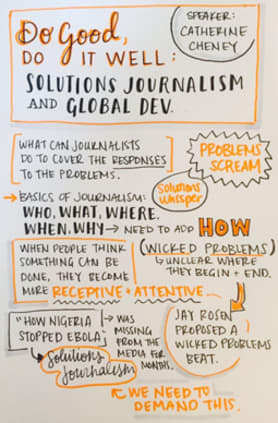 Do Good,
DO IT WELL:
SOLUTIONS JOURNALISM
AND GLOBAL DEV.
SPEAKER:
CATHERINE
CHENEY
WHAT CAN JOURNALISTS
DO TO COVER THE RESPONSES
TO THE PROBLEMS.
PROBLEMS
SCREAM
Solutions
whisper
BASICS OF JOURNALISM:
WHO, WHAT, WHERE.
WHEN. WHY → NEED TO ADD HOW
WHEN PEOPLE THINK
SOMETHING CAN BE
DONE, THEY BECOME
MORE RECEPTIVE + ATTENTIVE
(WICKED PROBLEMS)
UNCLEAR WHERE
THEY BEGIN + END.
"HOW NIGERIA
STOPPED EBOLA"
→ WAS
MISSING
FROM THE
MEDIA FOR
MONTHS.
Solutions
Journalism
JAY ROSEN
PROPOSED A
WICKED PROBLEMS
BEAT.
WE NEED TO
DEMAND THIS.